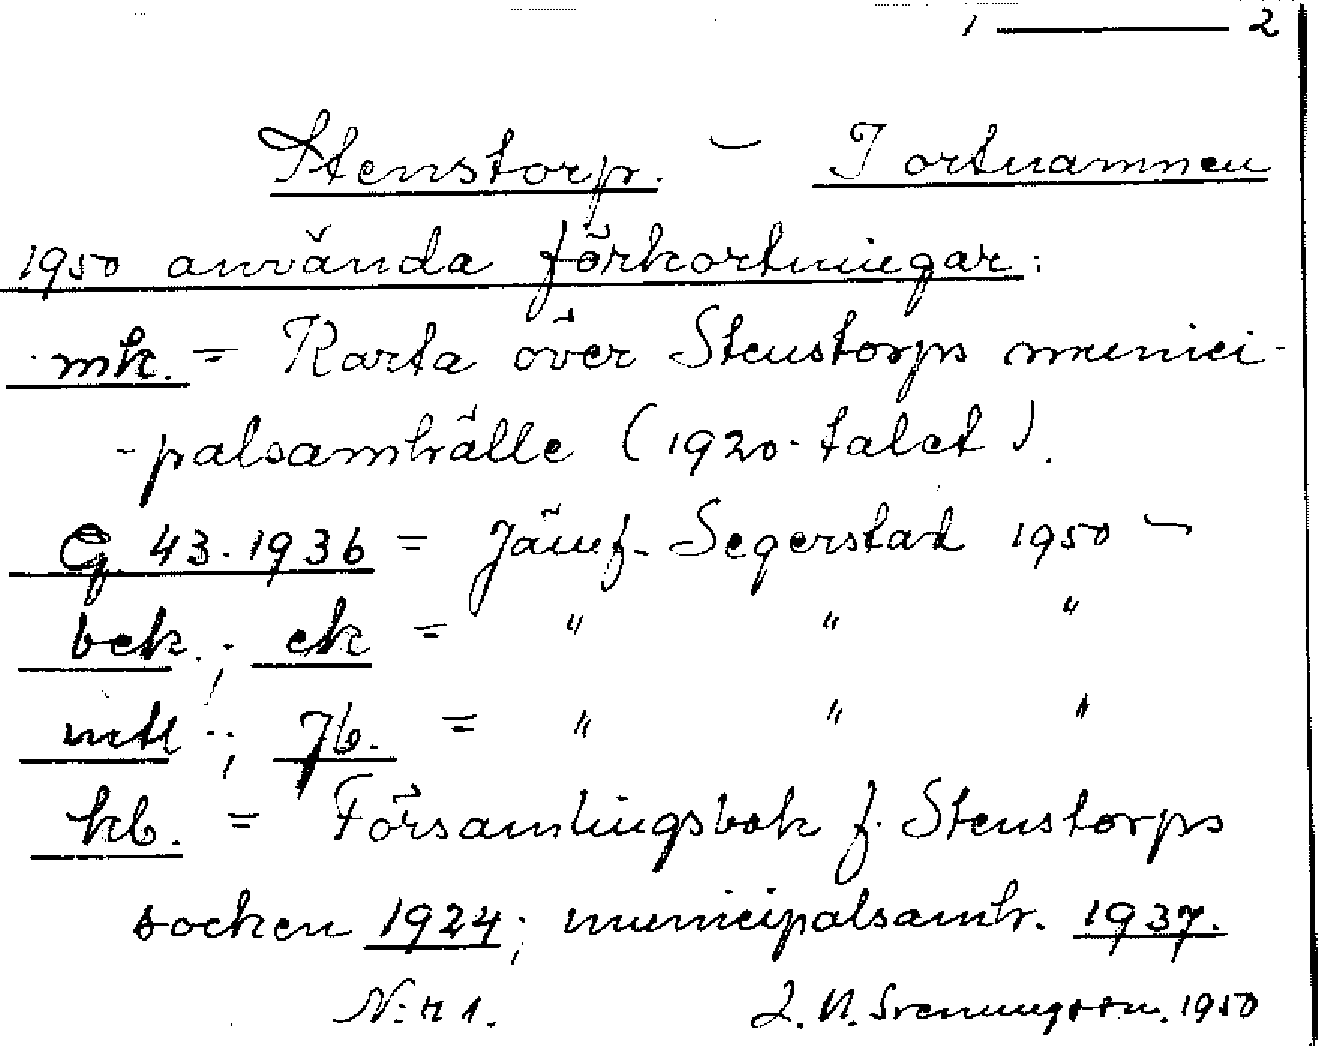 1 —— 2
Stenstorp. – I ortnamnen
1950 använda förkortningar:
mk. = Karta över Stenstorps munici-
-palsamhälle (1920-talet).
G 43.1936 = Jämf. Segerstad 1950 –
bek.; ek = " " "
mtl.; jb. = " " "
kb. = Församlingsbok f. Stenstorps
socken 1924; municipalsamh. 1937.
N:r 1. L. N. Svenungsson. 1950